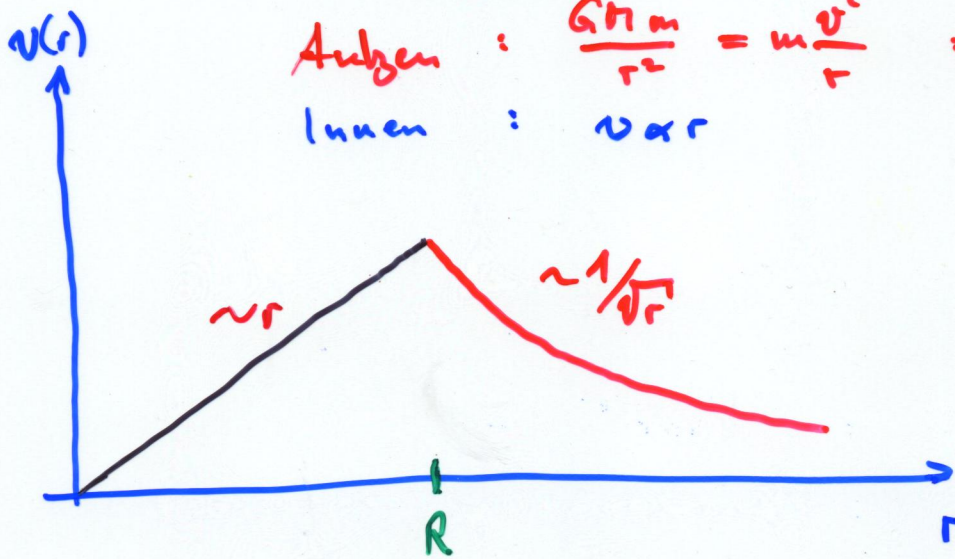 v(r)
Außen : GMm/r² = m v²/r =
Innen : v ∝ r
~r
~1/√r
R
r